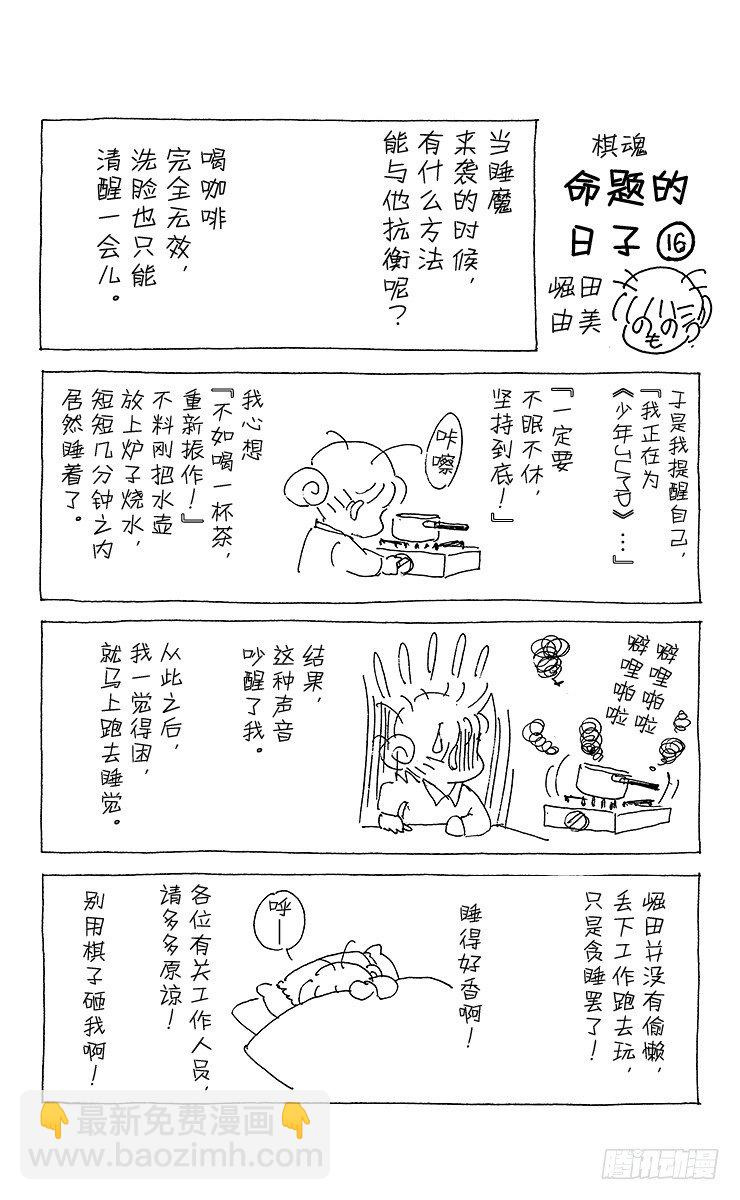 棋魂
命题的
日子⑯
崛田
由美
のものろ
当睡魔
来袭的时候，
有什么方法
能与他抗衡呢？
喝咖啡
完全无效，
洗脸也只能
清醒一会儿。
于是我提醒自己，
『我正在为
《少年JUMP》…』
『一定要
不眠不休，
坚持到底！』
咔嚓
我心想
『不如喝一杯茶，
重新振作！』
不料刚把水壶
放上炉子烧水，
短短几分钟之内
居然睡着了。
噼哩啪啦
噼哩啪啦
结果，
这种声音
吵醒了我。
从此之后，
我一觉得困，
就马上跑去睡觉。
崛田并没有偷懒，
丢下工作跑去玩，
只是贪睡罢了！
睡得好香啊！
呼—
各位有关工作人员，
请多多原谅！
别用棋子砸我啊！
最新免费漫画
www.baozimh.com
腾讯动漫